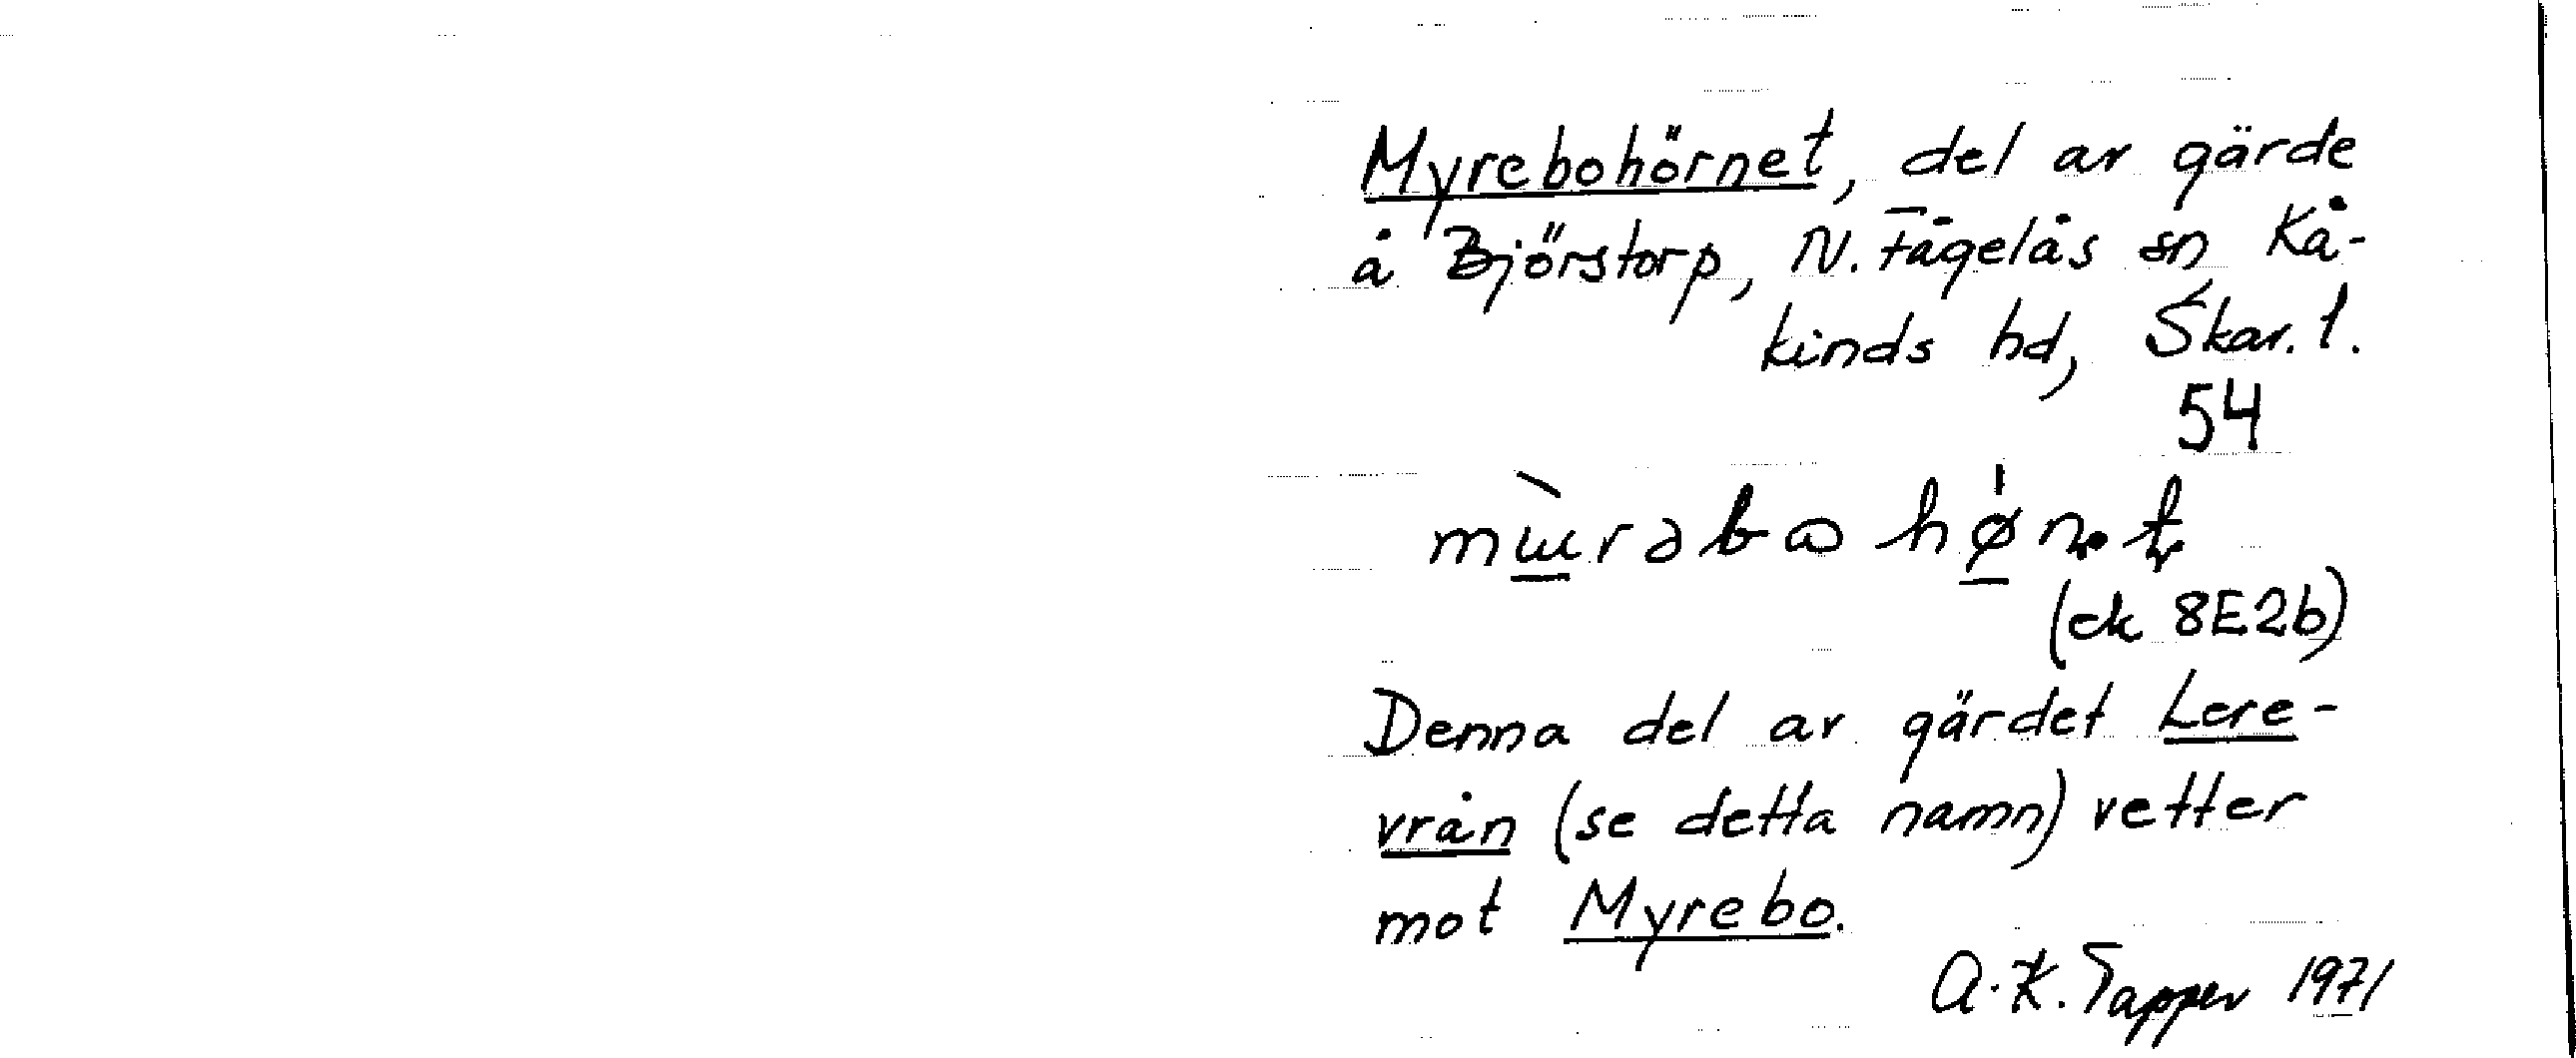 Myrebohörnet, del av gärde
å Björstorp, N. Fågelås sn, Kå-
kinds hd, Skar. l.
54
(ek 8E2b)
Denna del av gärdet Lere-
vrån (se detta namn) vetter
mot Myrebo.
A.K. Tapper 1971